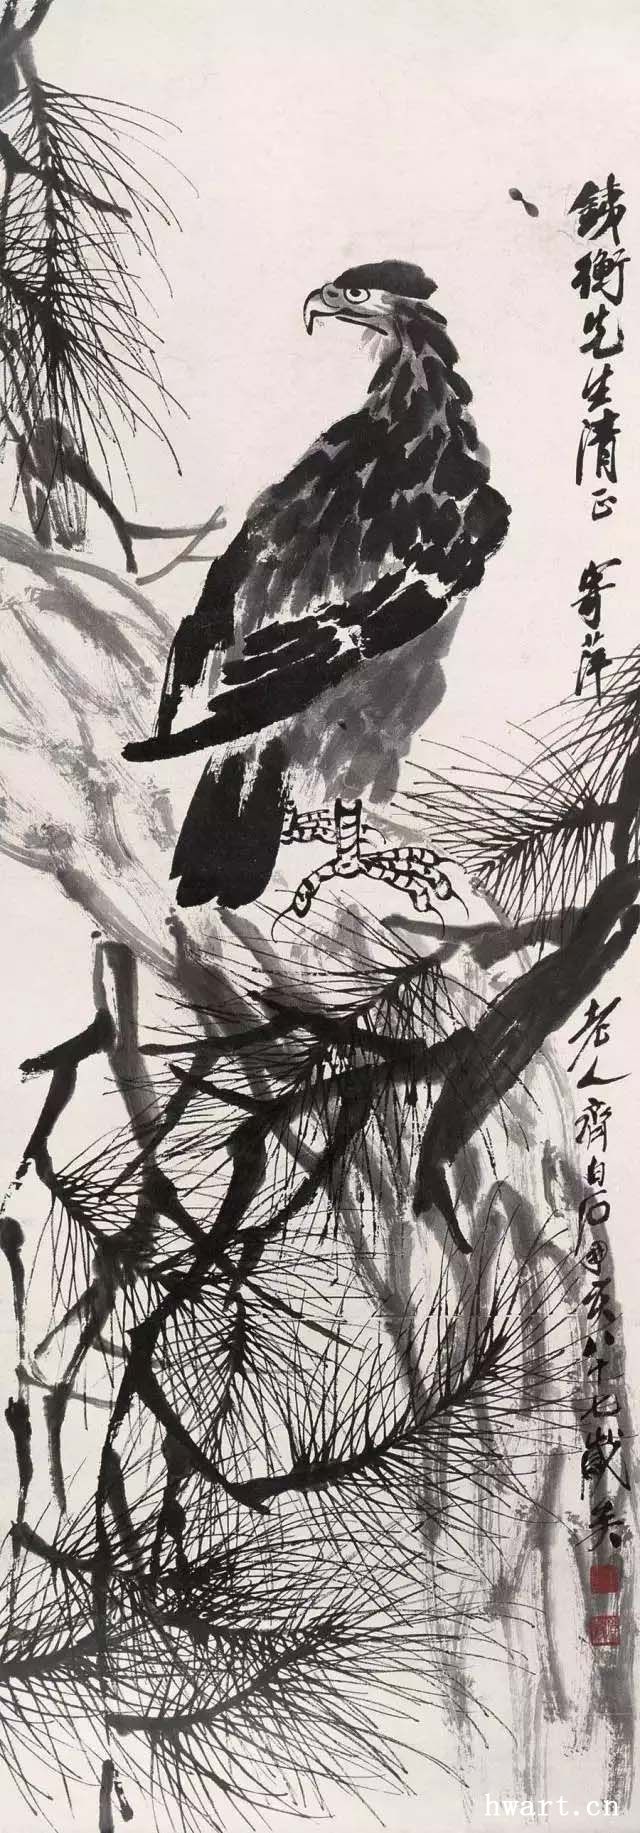 銕衡先生清正 寄萍老人齊白石亥八十七歲矣
hwart.cn